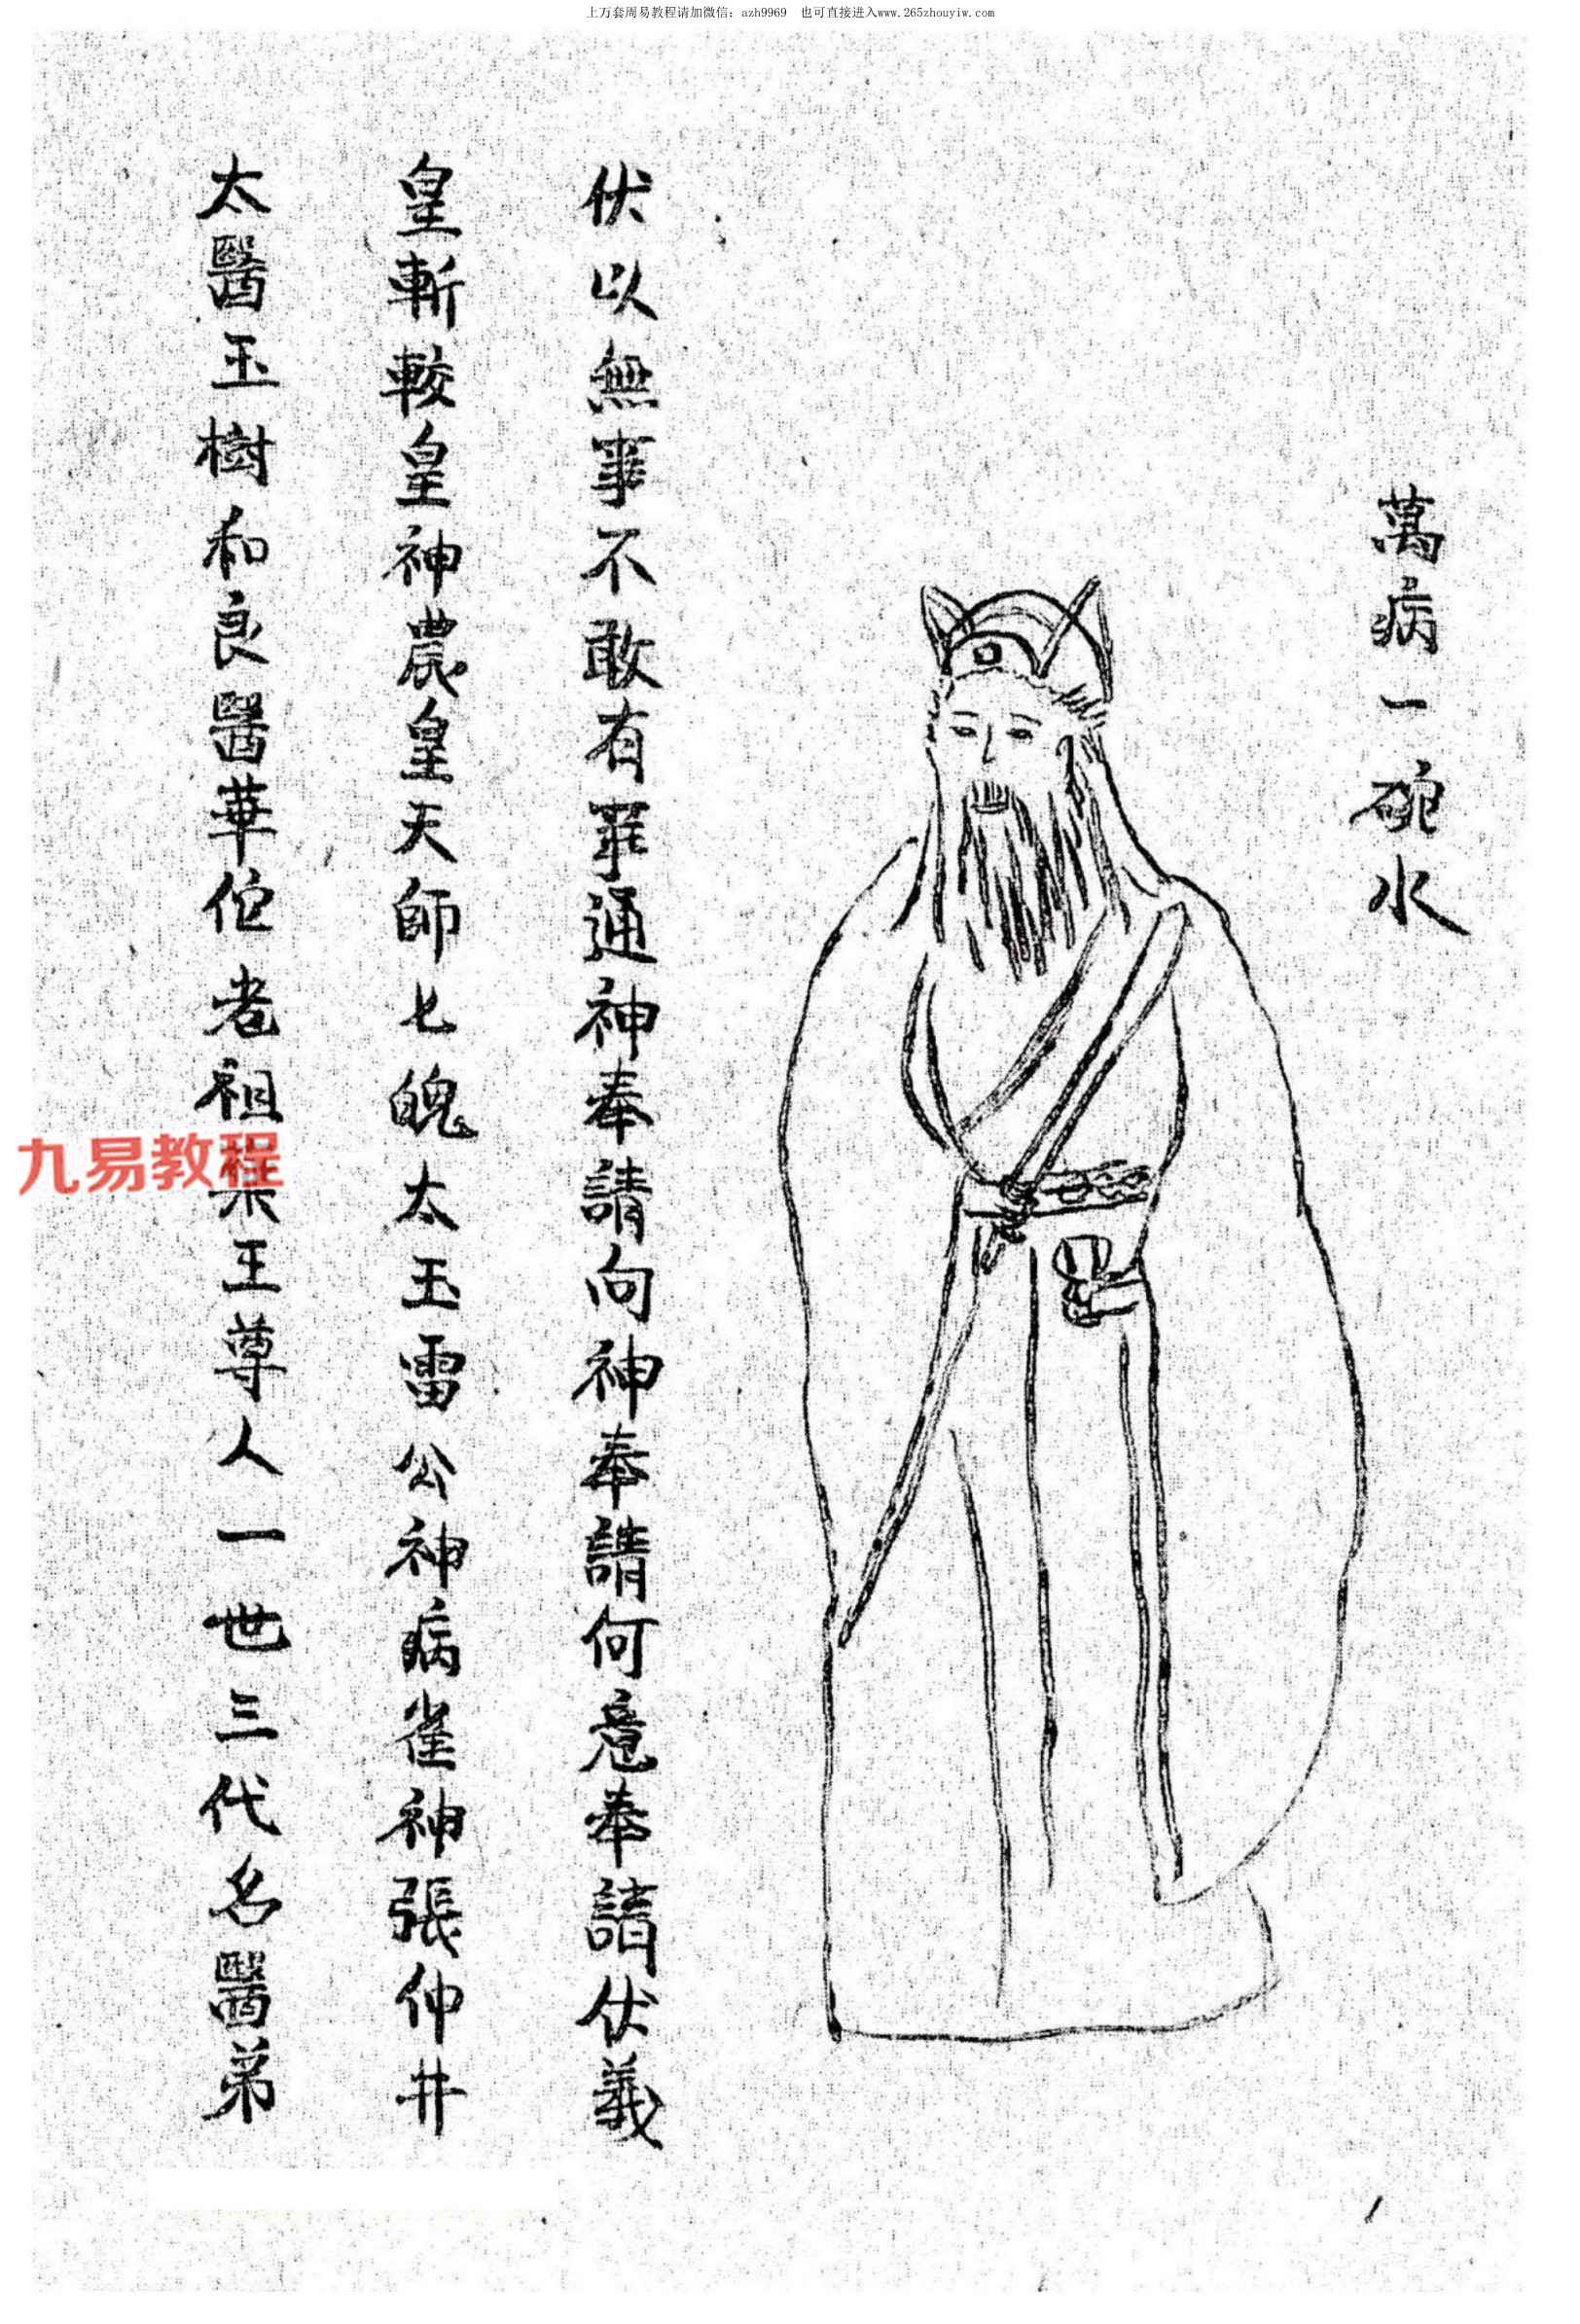 上万套周易教程请加微信：azh9969 也可直接进入www.265zhouyiw.com
萬病一碗水
伏以無事不敢有事通神奉請向神奉請何意奉請伏羲
皇斬較皇神農皇天師七魄太玉雷公神病雀神張仲井
太醫玉樹和良醫華佗老祖王尊人一世三代名醫弟
九易教程
1